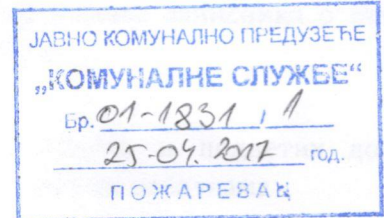 ЈАВНО КОМУНАЛНО ПРЕДУЗЕЋЕ
„КОМУНАЛНЕ СЛУЖБЕ“
Бр. 01-1831 / 1
25-04. 2017 год.
ПОЖАРЕВАЦ